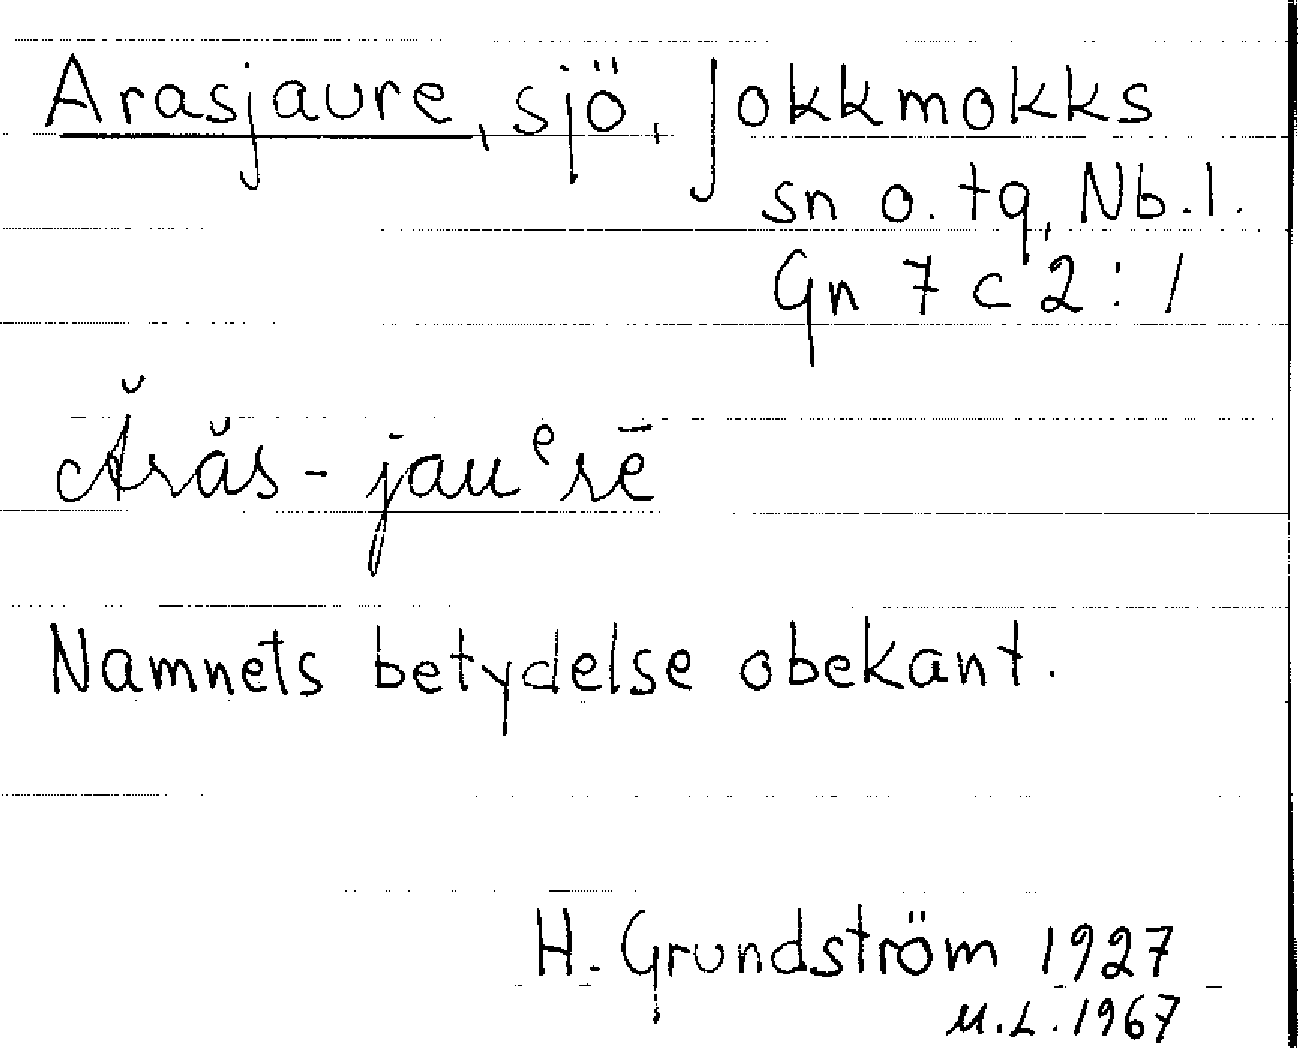 Arasjaure, sjö, Jokkmokks
sn o. tg, Nb.l.
Gn 7 c 2 : 1
Ărăs-jauᵉrē
Namnets betydelse obekant.
H. Grundström 1927
M.L. 1967